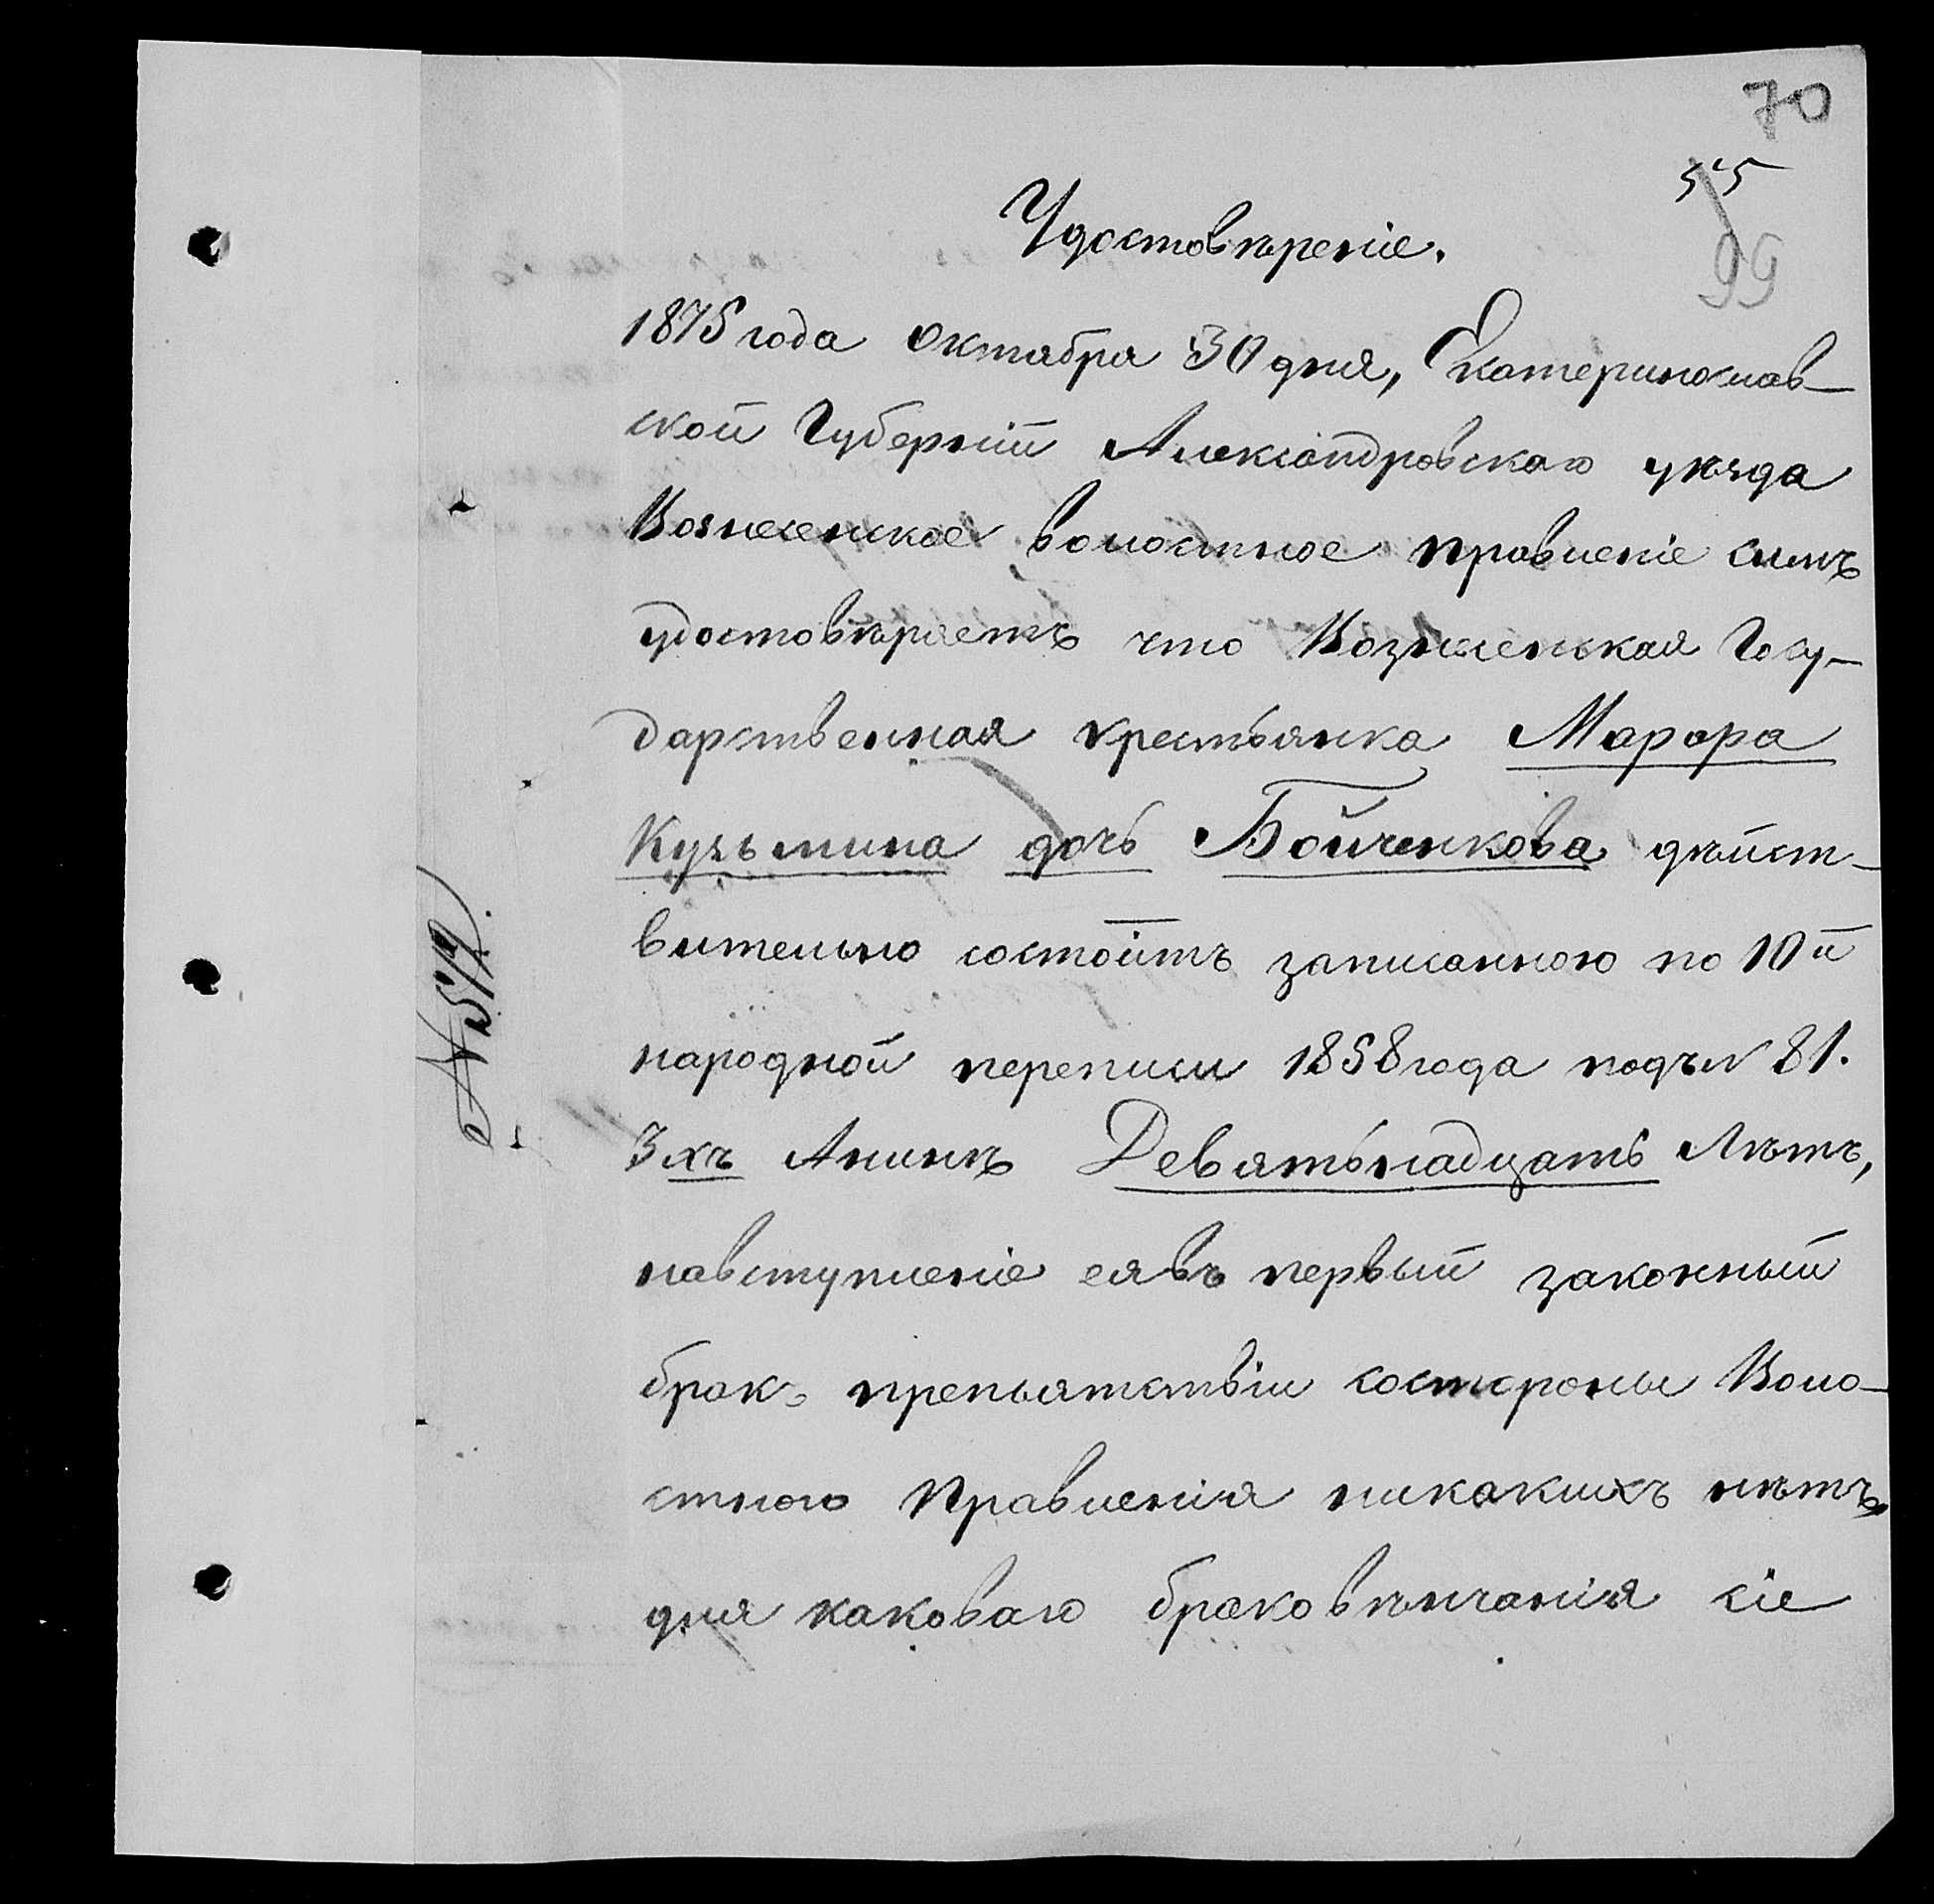 70
55
99
Удостовѣреніе.
1875 года Октября 30 дня, Екатеринослав-
ской Губерніи Александровскаго уѣзда
Вознесенское волостное правленіе симъ
удостовѣряетъ что Вознесенская Госу-
дарственная крестьянка Марфра
Кузьмина дочь Бойченкова дѣйст-
вительно состоитъ записанною по 10й
народной переписи 1858 года подъ N 81.
3хъ Анинъ Девятьнадцать Лѣтъ,
навступленіе еявъ первый законный
бракъ препьятствіи состороны Воло-
стного Правленія никакихъ нѣтъ,
для каковаго браковѣнчанія сіе